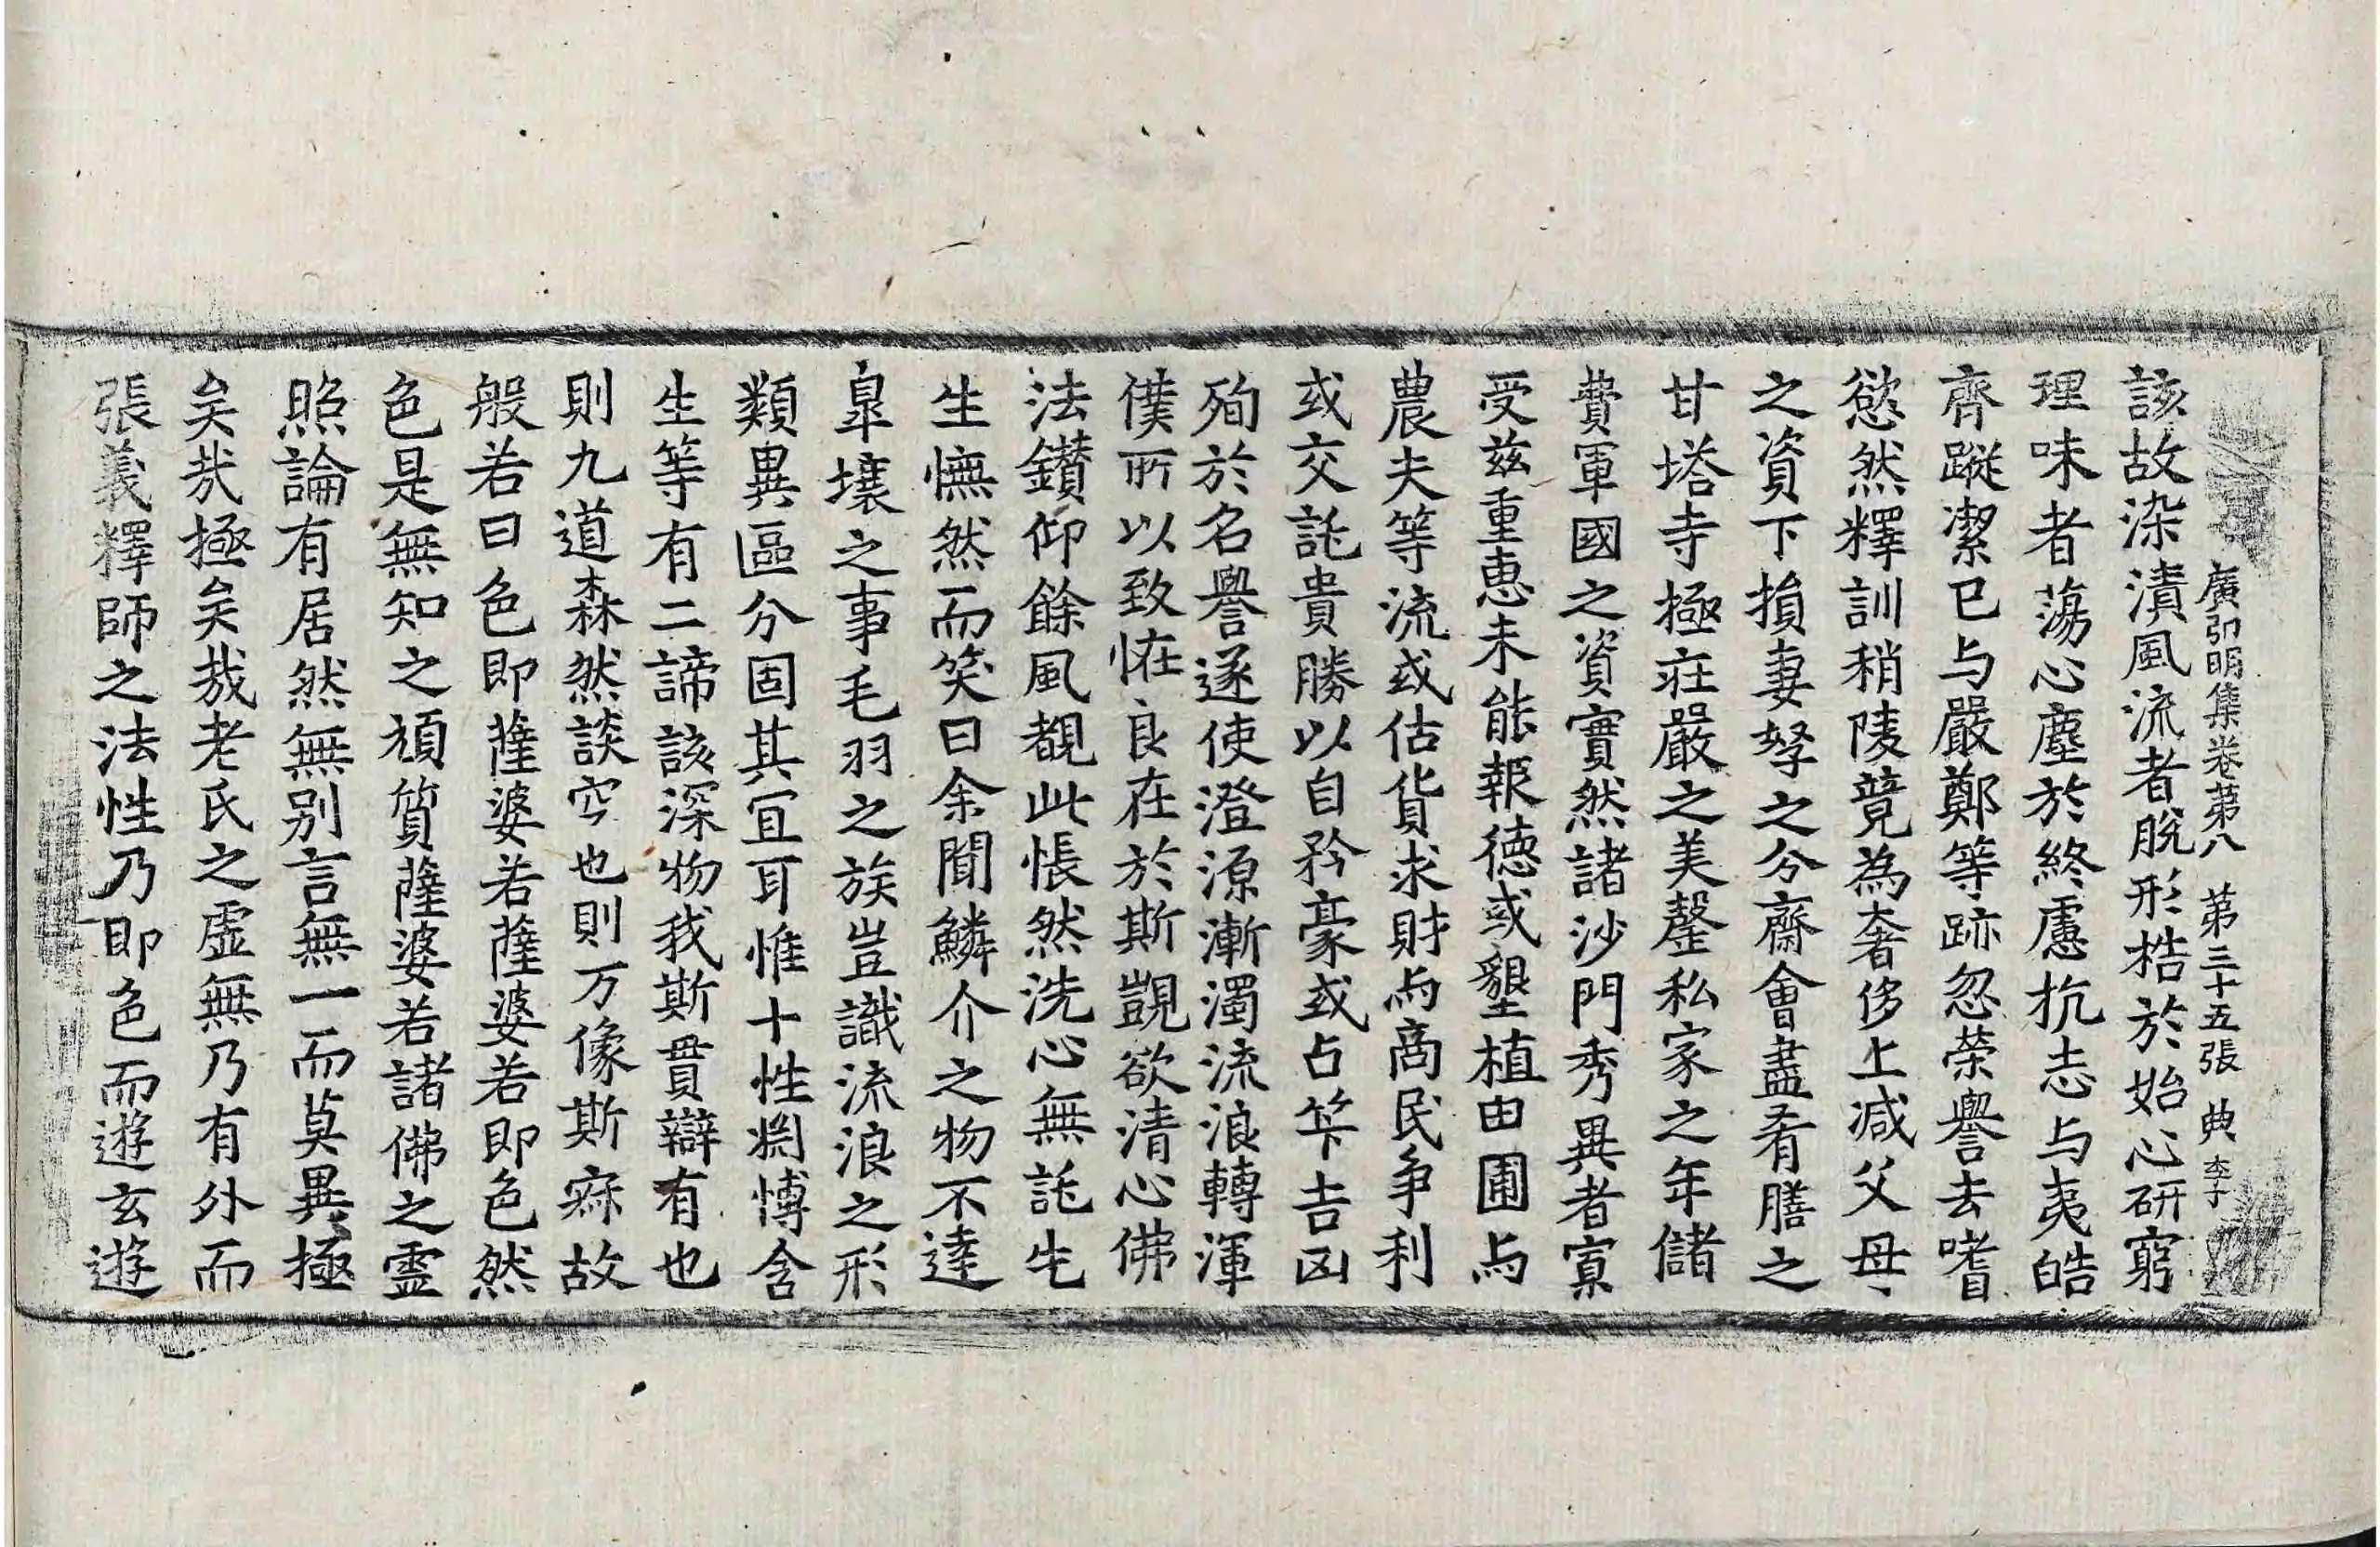 廣弘明集卷第八　第三十五張　典　李子
該故染漬風流者脫形梏於始心研窮
理味者蕩心塵於終慮抗志与夷皓
齊蹤潔已与嚴鄭等跡忽榮譽去嗜
慾然釋訓稍陵竟為奢侈上减父母、
之資下損妻孥之分齋會盡肴膳之
甘塔寺極莊嚴之美罄私家之年儲
費軍國之資實然諸沙門秀異者寡
受茲重惠未能報德或墾植田圃与
農夫等流或估貨求財与商民争利
或交託貴勝以自矜豪或占筭吉凶
殉於名譽遂使澄源漸濁流浪轉渾
僕所以致恠良在於斯覬欲清心佛
法鑽仰餘風覩此悵然洗心無託先
生憮然而笑曰余聞鱗介之物不達
皐壤之事毛羽之族豈識流浪之形
類異區分固其冝耳惟十性渕博含
生等有二諦該深物我斯貫辯有也
則九道森然談空也則万像斯寂故
般若曰色即薩婆若薩婆若即色然
色是無知之頑質薩婆若諸佛之霊
照論有居然無别言無一而莫異極
矣㢤極矣哉老氏之虚無乃有外而
張義釋師之法性乃即色而遊玄遊